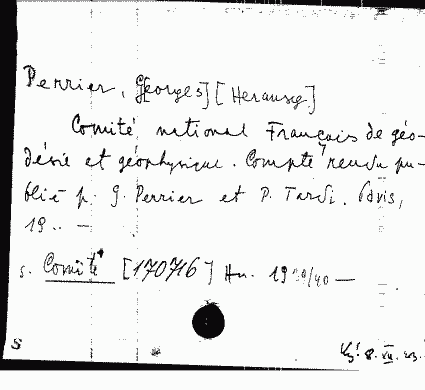 Perrier, G[eorges] [Herausg.]
Comité national Français de géo-
désie et géophysique. Compte rendu pu-
blié p. G. Perrier et P. Tardi. Paris,
19.. —
s. Comité [170716] Hn. 1939/40 —
S 8. XII.